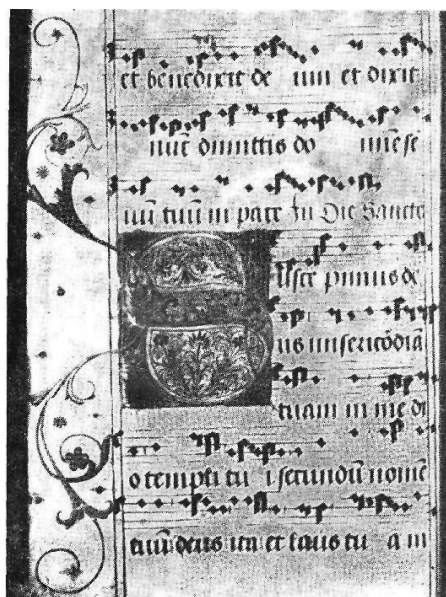 et benedixit de um et dixit
nūc dimittis do mīe se
uū tuū in pace In Die Sancte
Suscepimus de
us misericōdiā
tuam in me di
o templi tu i secundū nomē
tuū deus ita et laus tu a in